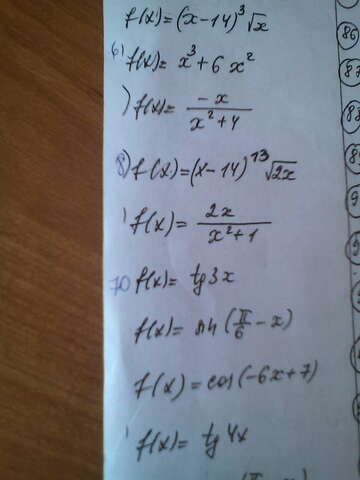 f(x)=(x-14)³√x
6) f(x)= x³+6x²
) f(x)= -x/(x²+4)
8) f(x)=(x-14)¹³√2x
) f(x)= 2x/(x²+1)
70 f(x)= tg3x
f(x)= sin(π/6-x)
f(x)=cos(-6x+7)
) f(x)= tg4x
86
87